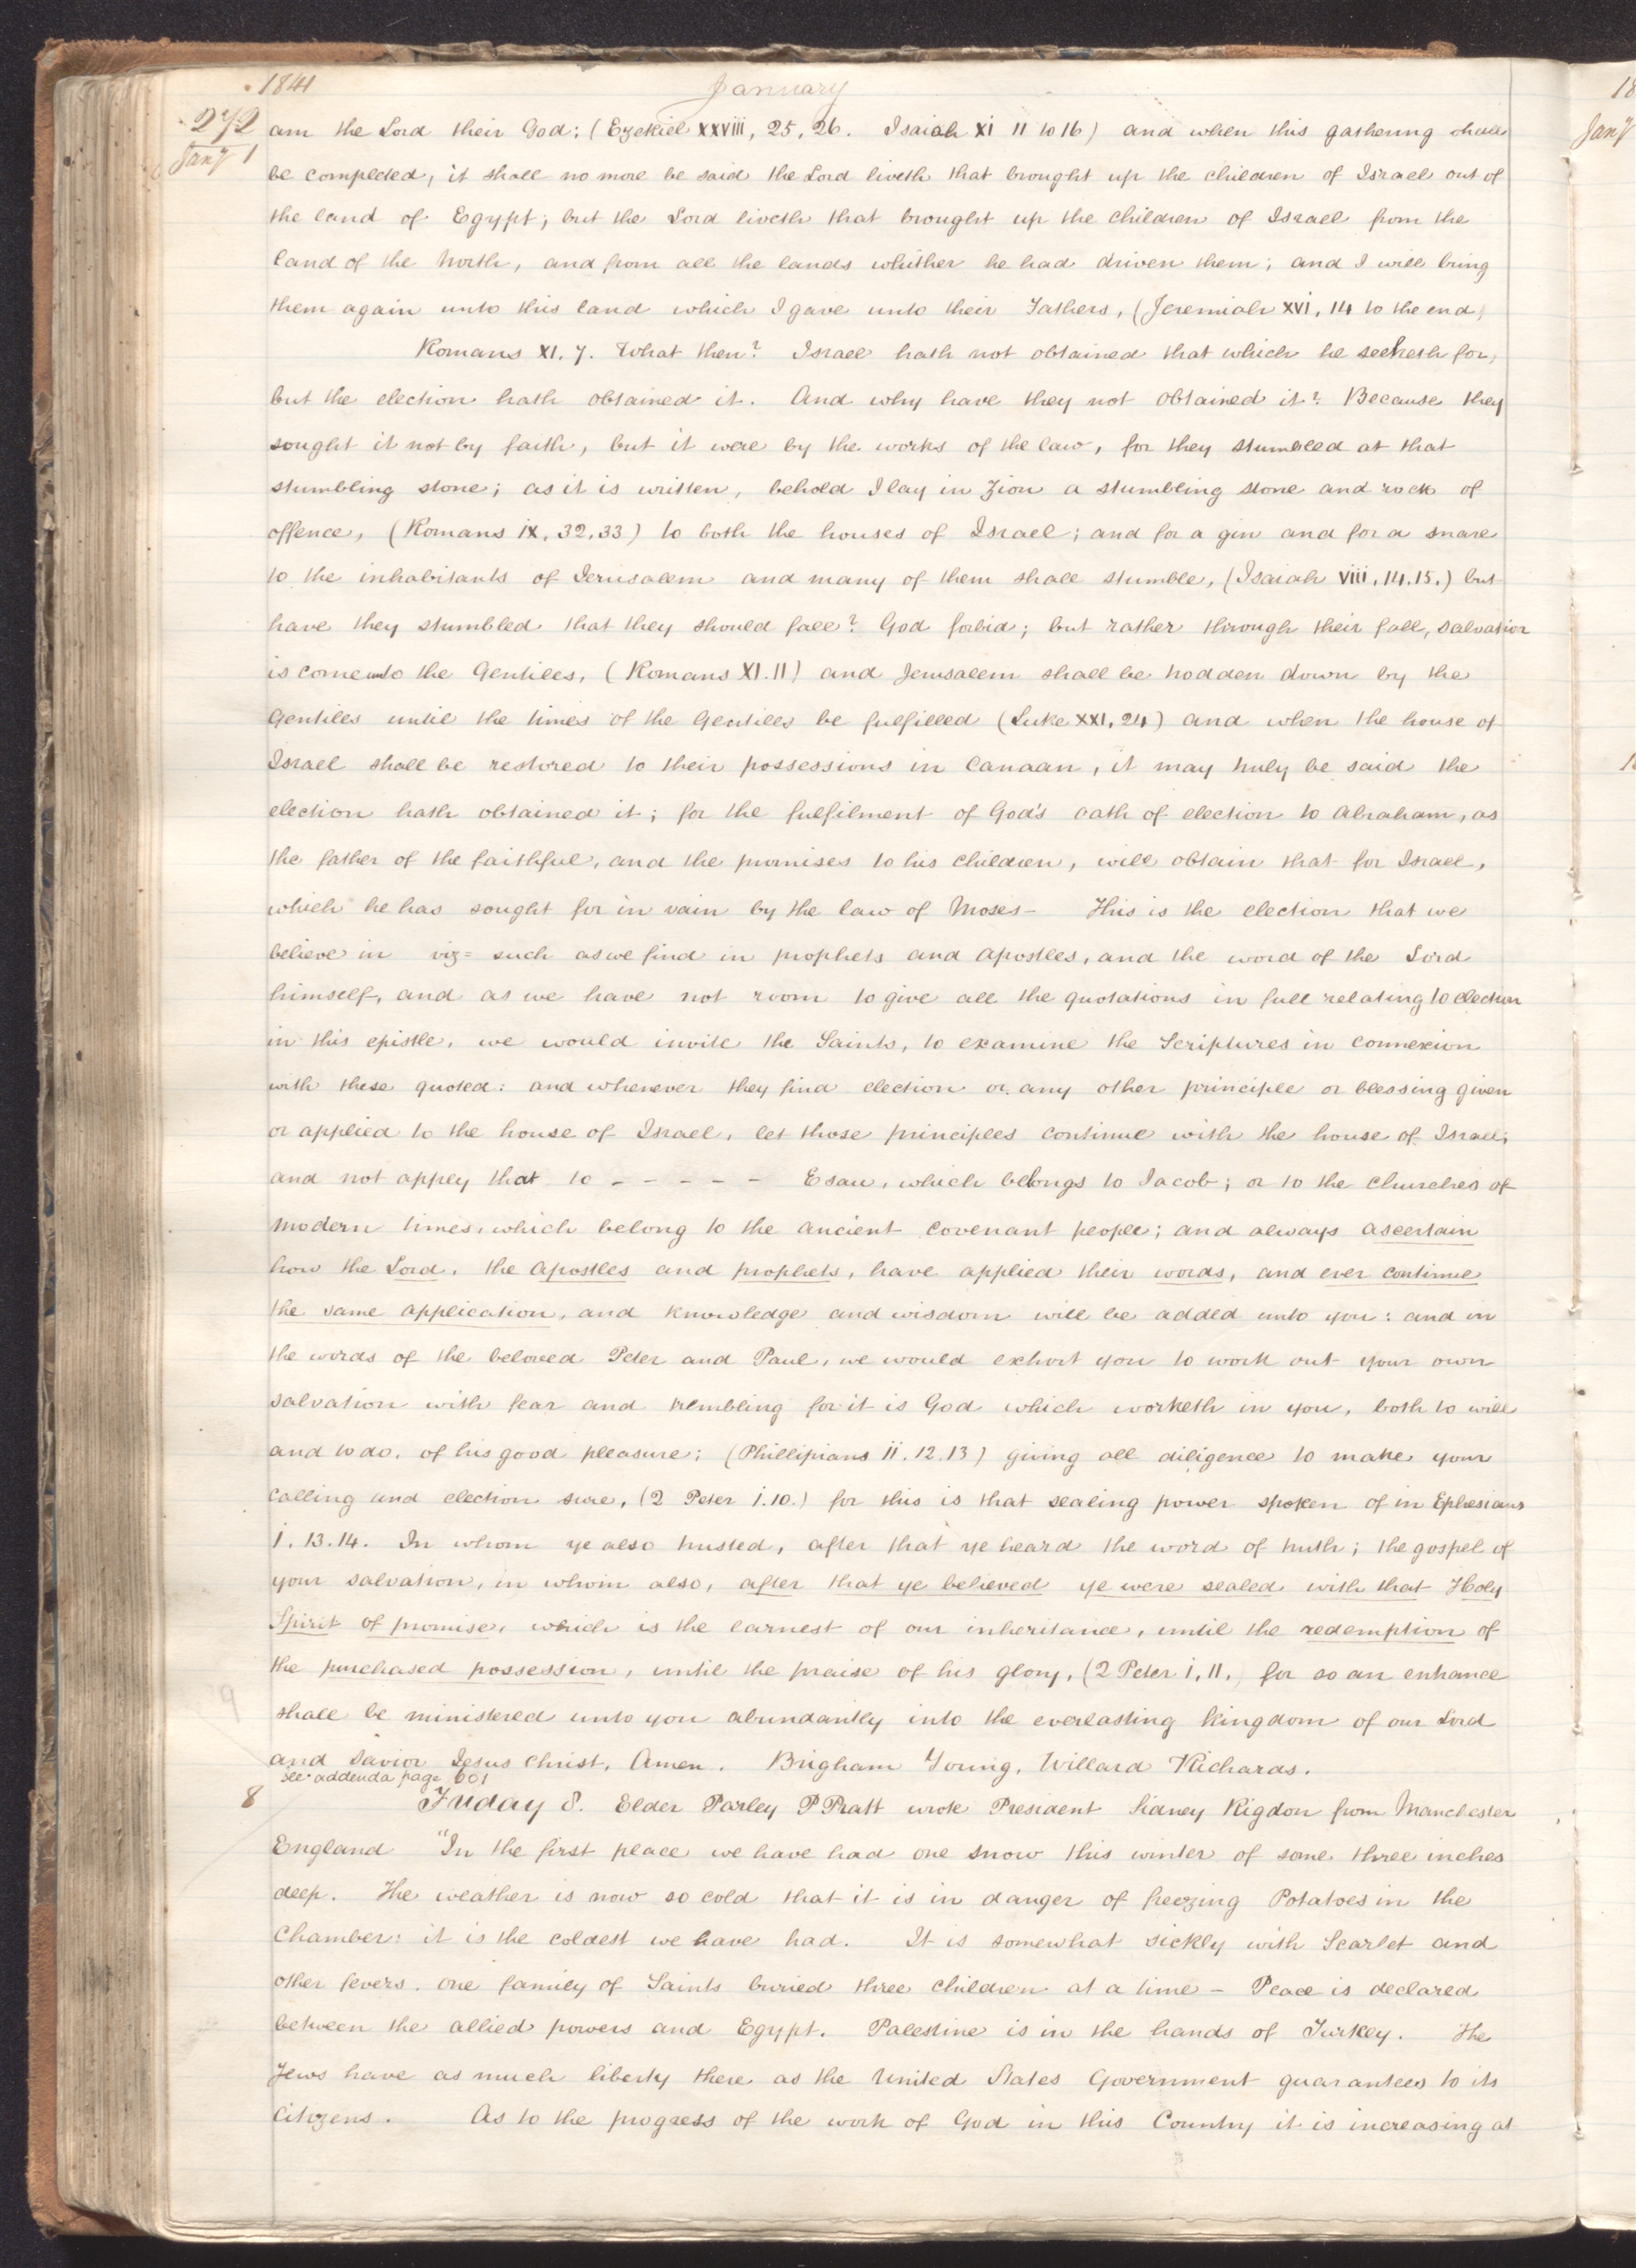 1841 January
272
Jany 1
am the Lord their God; (Ezekiel xxviii, 25, 26. Isaiah xi 11 to 16) and when this gathering shall
be completed, it shall no more be said the Lord liveth that brought up the children of Israel out of
the land of Egypt; but the Lord liveth that brought up the children of Israel from the
land of the North, and from all the lands whither he had driven them; and I will bring
them again unto this land which I gave unto their Fathers, (Jeremiah xvi, 14 to the end)
Romans XI. 7. What then? Israel hath not obtained that which he seeketh for,
but the election hath obtained it. And why have they not obtained it? Because they
sought it not by faith, but it were by the works of the law, for they stumbled at that
stumbling stone; as it is written, behold I lay in Zion a stumbling stone and rock of
offence, (Romans ix, 32, 33) to both the houses of Israel; and for a gin and for a snare
to the inhabitants of Jerusalem and many of them shall stumble, (Isaiah viii, 14. 15.) but
have they stumbled that they should fall? God forbid; but rather through their fall, salvation
is come unto the Gentiles, (Romans XI. 11) and Jerusalem shall be trodden down by the
Gentiles until the times of the Gentiles be fulfilled (Luke xxi, 24) and when the house of
Israel shall be restored to their possessions in Canaan, it may truly be said the
election hath obtained it; for the fulfilment of God's oath of election to Abraham, as
the father of the faithful, and the promises to his children, will obtain that for Israel,
which he has sought for in vain by the law of Moses - This is the election that we
believe in viz= such as we find in prophets and apostles, and the word of the Lord
himself, and as we have not room to give all the quotations in full relating to election
in this epistle, we would invite the Saints, to examine the Scriptures in connexion
with these quoted: and whenever they find election or any other principle or blessing given
or applied to the house of Israel, let those principles continue with the house of Israel;
and not apply that to - - - - - Esau, which belongs to Jacob; or to the churches of
modern times, which belong to the ancient covenant people; and always ascertain
how the Lord, the apostles and prophets, have applied their words, and ever continue
the same application, and knowledge and wisdom will be added unto you: and in
the words of the beloved Peter and Paul, we would exhort you to work out your own
salvation with fear and trembling for it is God which worketh in you, both to will
and to do, of his good pleasure; (Phillipians ii. 12. 13) giving all diligence to make your
calling and election sure, (2 Peter i. 10.) for this is that sealing power spoken of in Ephesians
i. 13. 14. In whom ye also trusted, after that ye heard the word of truth; the gospel of
your salvation, in whom also, after that ye believed ye were sealed with that Holy
Spirit of promise, which is the earnest of our inheritance, until the redemption of
the purchased possession, until the praise of his glory, (2 Peter i, 11, for so an entrance
shall be ministered unto you abundantly into the everlasting kingdom of our Lord
and Savior Jesus Christ, Amen. Brigham Young, Willard Richards.
see addenda page 001
8 Friday 8. Elder Parley P Pratt wrote President Sidney Rigdon from Manchester
England "In the first place we have had one snow this winter of some three inches
deep. The weather is now so cold that it is in danger of freezing Potatoes in the
Chamber: it is the coldest we have had. It is somewhat sickly with Scarlet and
other fevers. one family of Saints buried three children at a time - Peace is declared
between the allied powers and Egypt. Palestine is in the hands of Turkey. The
Jews have as much liberty there as the United States Government guarantees to its
Citizens. As to the progress of the work of God in this Country it is increasing at
9
18
Jany